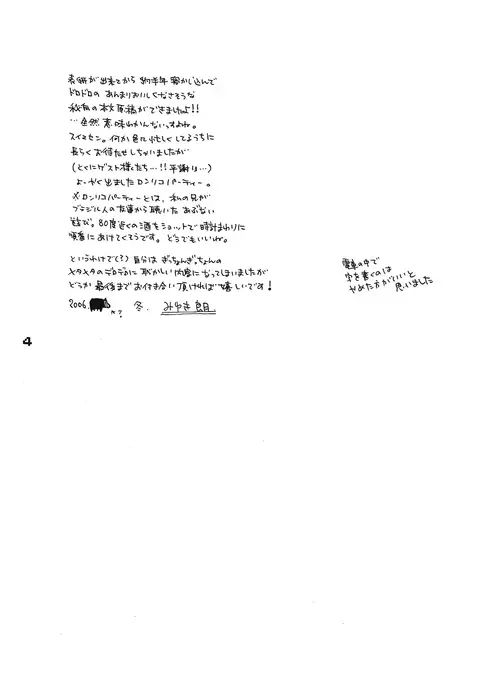 表紙が出来てから約半年寝かし込んで
ドロドロの あんまりおいしくなさそうな
秘蔵の本文原稿ができましたよ!!
…全然意味わかんないっすよね。
スイマセン。何か色々忙しくしてるうちに
長らくお待たせしちゃいましたが
(とくにゲスト様たち…!!平謝り…)
よーやく出ましたロンリコパーティー。
※ロンリコパーティーとは、私の兄が
ブラジル人の友達から聴いた あぶない
遊び。80度近くの酒をショットで時計まわりに
順番にあけてくそうです。どうでもいいね。
というわけで(?)自分は ぎっちょんぎっちょんの
メタメタのデロデロに恥かしい内容になってしまいましたが
どうか最後までお付き合い頂ければ嬉しいです!
2006. 冬. みゆき朗
?
電車の中で
字を書くのは
やめた方がいいと
思いました
4